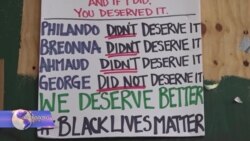 AND IF I DID,
YOU DESERVED IT.
PHILANDO DIDN'T DESERVE IT
BREONNA DIDN'T DESERVE IT
AHMAUD DIDN'T DESERVE IT
GEORGE DID NOT DESERVE IT
WE DESERVE BETTER
#BLACKLIVESMATTER